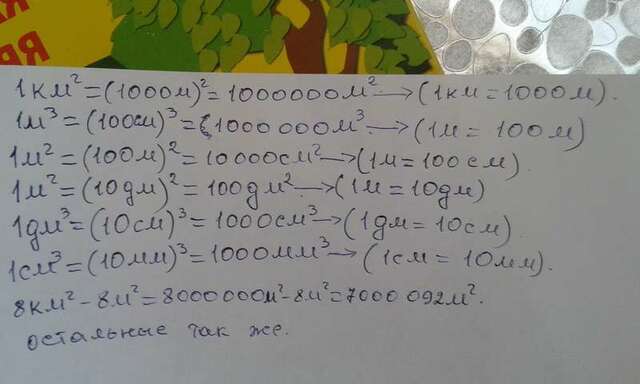 1км²=(1000м)²=1000000м²→(1км=1000м).
1м³=(100см)³=(1000 000м³→(1м=100м)
1м²=(100м)²=10000см²→(1м=100см).
1м²=(10дм)²=100дм²→(1м=10дм)
1дм³=(10см)³=1000см³→(1дм=10см).
1см³=(10мм)³=1000мм³→(1см=10мм).
8км²-8м²=8000000м²-8м²=7000 092м².
остальные так же.